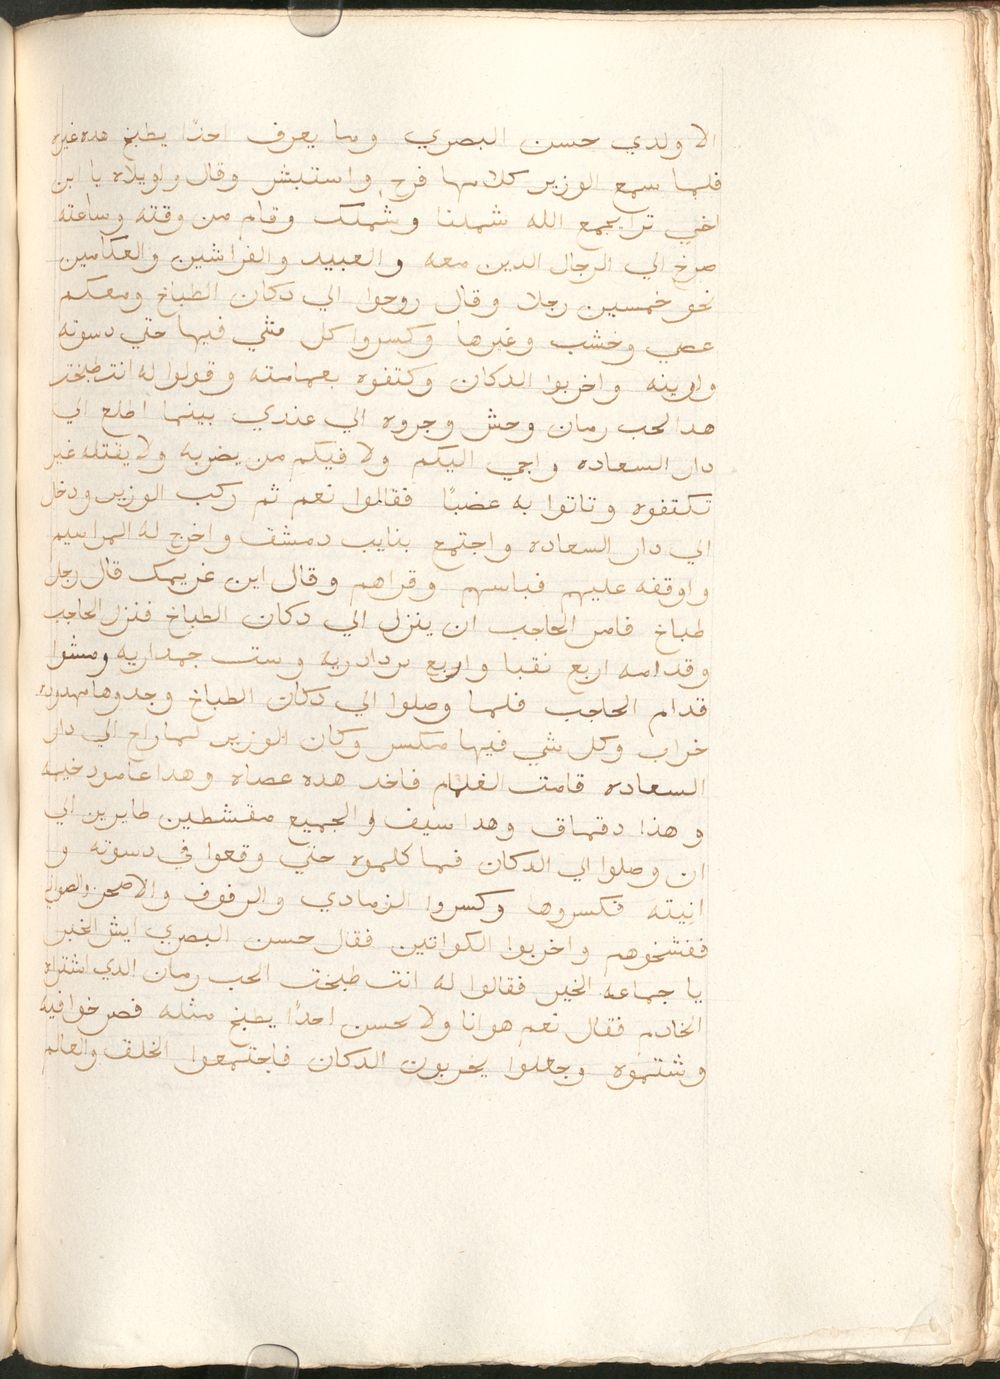 الا ولدي حسن البصري وما يعرف احدًا يطبخ هده غيره
فلما سمع الوزير كلامها فرح واستبشر وقال واويلاه يا ابن
اخي ترا يجمع الله شملنا وشملك وقام من وقته وساعته
صرخ الي الرجال الدين معه والعبيد والفراشين والعكامين
نحو خمسين رجلا وقال روحوا الي دكان الطباخ ومعكم
عصي وخشب وغيرها وكسروا كل مثي فيها حتي دسوته
واونيه واخربوا الدكان وكتفوه بعمامته وقولوا له انت طبخت
هدا لحب رمان وحش وجروه الي عندي بينما اطلع الي
دار السعاده واجي اليكم ولا فيكم من يضربه ولا يقتله غير
تكتفوه وتاتوا به غضبًا فقالوا نعم ثم ركب الوزير ودخل
الي دار السعاده واجتمع بنايب دمشق واخرج له المراسيم
واوقفه عليهم فباسهم وقراهم وقال اين غريمك قال رجل
طباخ فامر الحاجب ان ينزل الي دكان الطباخ فنزل الحاجب
وقدامه اربع نقبا واربع بردادريه وست جمداريه ومشوا
قدام الحاجب فلما وصلوا الي دكان الطباخ وجدوها مهدوده
خراب وكل شي فيها مكسر وكان الوزير لما راح الي دار
السعاده قامت الغلمام فاخد هده عصاه وهدا عامود خيمه
وهدا دقماق وهدا سيف والجميع مقشطين طايرين الي
ان وصلوا الي الدكان فما كلموه حتي وقعوا في دسوته و
انيته فكسروها وكسروا الزمادي والرفوف والاصحن والصواني
ففشخوهم واخربوا الكواتين فقال حسن البصري ايش الخبر
يا جماعه الخير فقالوا له انت طبخت الحب رمان الدي اشتراه
الخادم فقال نعم هو انا ولا يحسن احدًا يطبخ مثله فصرخوا فيه
وشتموه وجعلوا يخربون الدكان فاجتمعوا الخلق والعالم